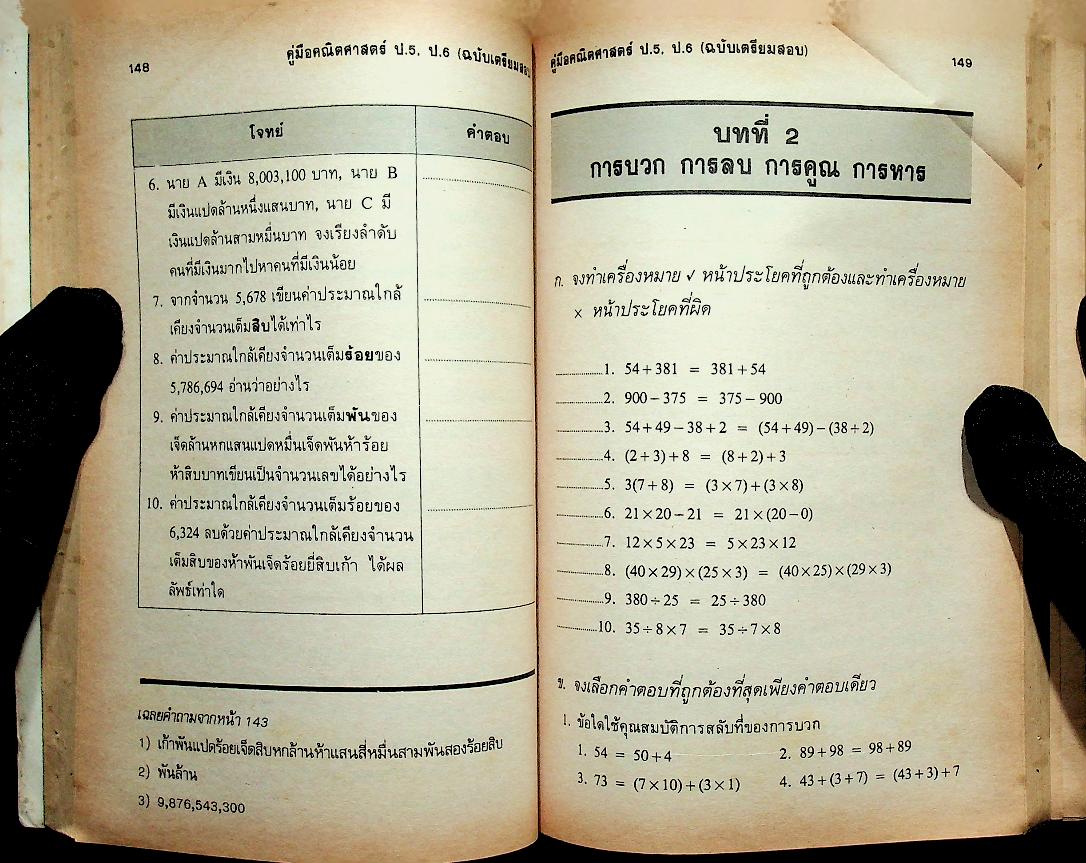 148
คู่มือคณิตศาสตร์ ป.5, ป.6 (ฉบับเตรียมสอบ
โจทย์ คำตอบ
6. นาย A มีเงิน 8,003,100 บาท, นาย B
มีเงินแปดล้านหนึ่งแสนบาท, นาย C มี
เงินแปดล้านสามหมื่นบาท จงเรียงลำดับ
คนที่มีเงินมากไปหาคนที่มีเงินน้อย
7. จากจำนวน 5,678 เขียนค่าประมาณใกล้
เคียงจำนวนเต็มสิบได้เท่าไร
8. ค่าประมาณใกล้เคียงจำนวนเต็มร้อยของ
5,786,694 อ่านว่าอย่างไร
9. ค่าประมาณใกล้เคียงจำนวนเต็มพันของ
เจ็ดล้านหกแสนแปดหมื่นเจ็ดพันห้าร้อย
ห้าสิบบาทเขียนเป็นจำนวนเลขได้อย่างไร
10. ค่าประมาณใกล้เคียงจำนวนเต็มร้อยของ
6,324 ลบด้วยค่าประมาณใกล้เคียงจำนวน
เต็มสิบของห้าพันเจ็ดร้อยยี่สิบเก้า ได้ผล
ลัพธ์เท่าใด
เฉลยคำถามจากหน้า 143
1) เก้าพันแปดร้อยเจ็ดสิบหกล้านห้าแสนสี่หมื่นสามพันสองร้อยสิบ
2) พันล้าน
3) 9,876,543,300
คู่มือคณิตศาสตร์ ป.5, ป.6 (ฉบับเตรียมสอบ)
149
บทที่ 2
การบวก การลบ การคูณ การหาร
ก. จงทำเครื่องหมาย √ หน้าประโยคที่ถูกต้องและทำเครื่องหมาย
× หน้าประโยคที่ผิด
..........1. 54+381 = 381+54
..........2. 900−375 = 375−900
..........3. 54+49−38+2 = (54+49)−(38+2)
..........4. (2+3)+8 = (8+2)+3
..........5. 3(7+8) = (3×7)+(3×8)
..........6. 21×20−21 = 21×(20−0)
..........7. 12×5×23 = 5×23×12
..........8. (40×29)×(25×3) = (40×25)×(29×3)
..........9. 380÷25 = 25÷380
..........10. 35÷8×7 = 35÷7×8
ข. จงเลือกคำตอบที่ถูกต้องที่สุดเพียงคำตอบเดียว
1. ข้อใดใช้คุณสมบัติการสลับที่ของการบวก
1. 54 = 50+4 2. 89+98 = 98+89
3. 73 = (7×10)+(3×1) 4. 43+(3+7) = (43+3)+7